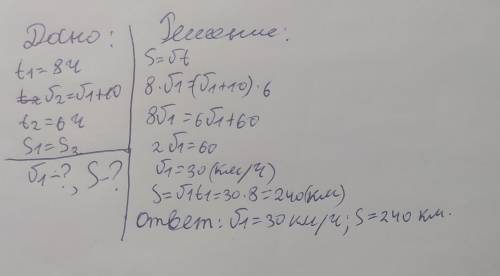 Дано:
t1=8ч
t2 υ2=υ1+10
t2=6ч
S1=S2
υ1-?, S-?
Решение:
S=υt
8·υ1=(υ1+10)·6
8υ1=6υ1+60
2υ1=60
υ1=30(км/ч)
S=υ1t1=30·8=240(км)
Ответ: υ1=30км/ч; S=240 км.